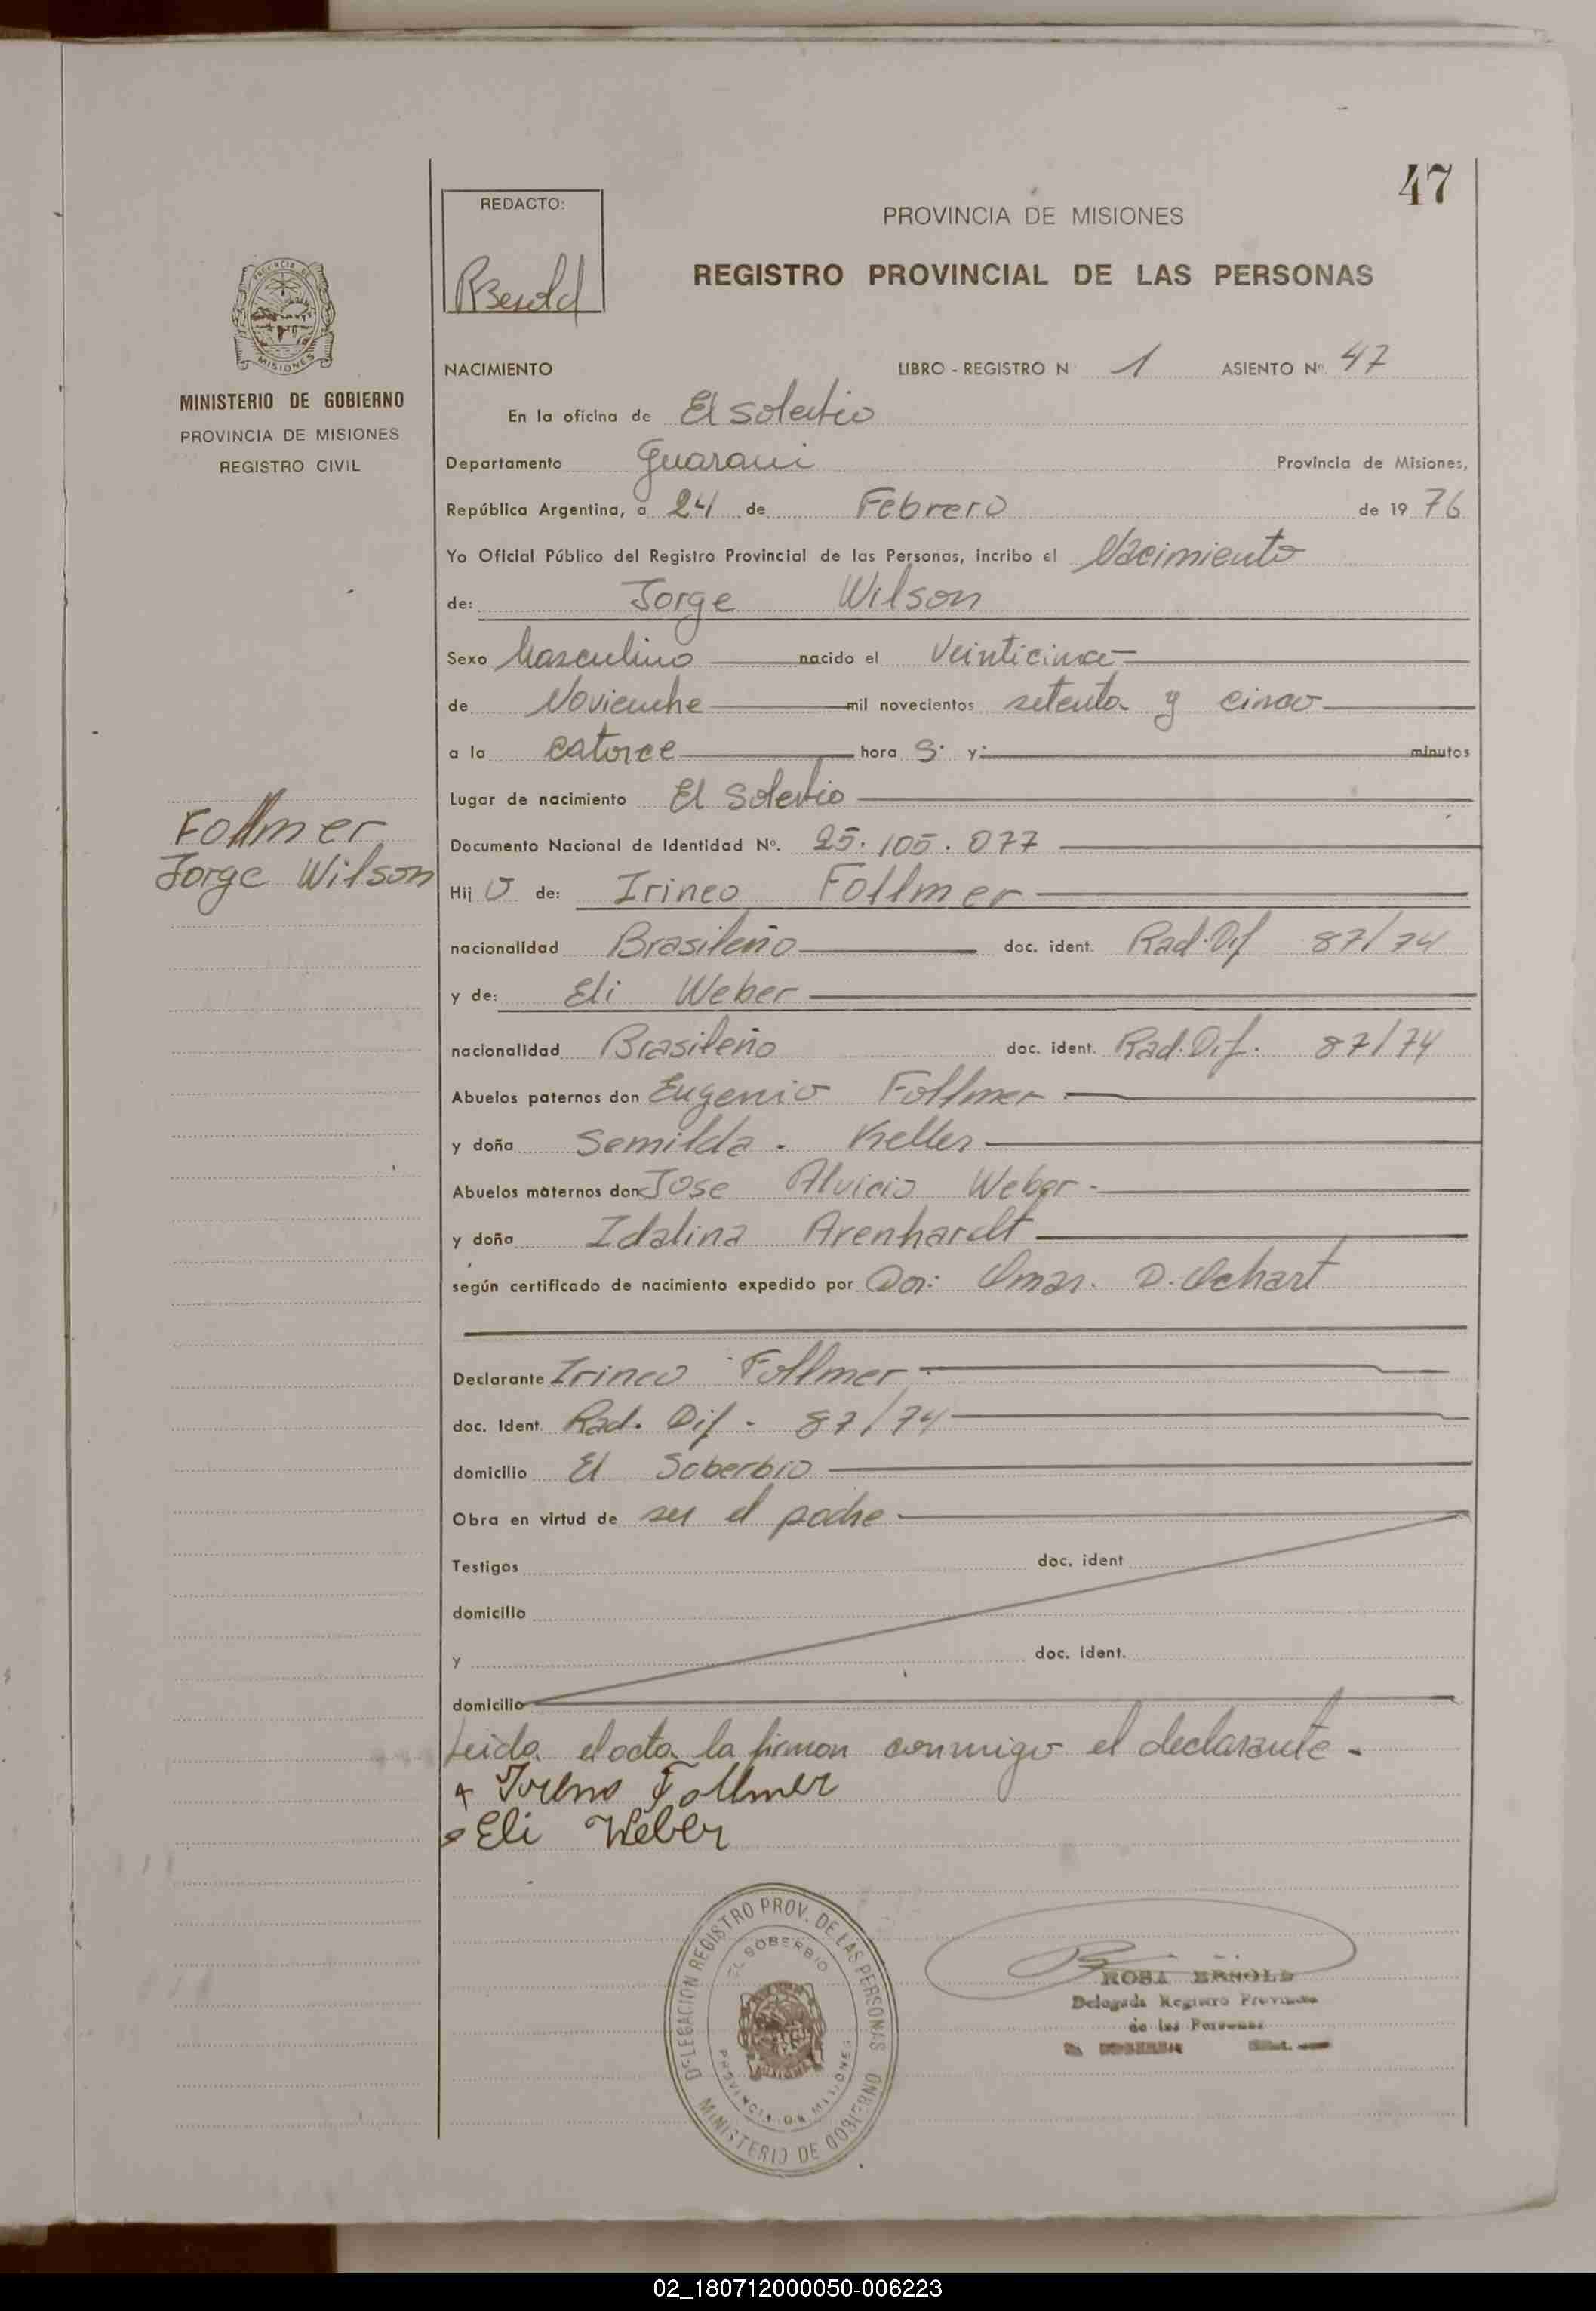 47
REDACTO:
PROVINCIA DE MISIONES
REGISTRO PROVINCIAL DE LAS PERSONAS
MISIONES
MINISTERIO DE GOBIERNO
PROVINCIA DE MISIONES
REGISTRO CIVIL
NACIMIENTO LIBRO - REGISTRO N 1 ASIENTO Nº 47
En la oficina de El Soberbio
Departamento Guarani Provincia de Misiones,
República Argentina, a 24 de Febrero de 19 76
Yo Oficial Público del Registro Provincial de las Personas, incribo el Nacimiento
de: Jorge Wilson
Sexo Masculino nacido el Veinticinco
de Noviembre mil novecientos setenta y cinco
a la catorce hora S. y: minutos
Lugar de nacimiento El Soberbio
Follmer
Jorge Wilson
Documento Nacional de Identidad Nº. 25.105.077
Hij o de: Irineo Follmer
nacionalidad Brasileño doc. ident. Rad. Dif 87/74
y de: Eli Weber
nacionalidad Brasileño doc. ident. Rad. Dif. 87/74
Abuelos paternos don Eugenio Follmer
y doña Semilda. Keller
Abuelos maternos don Jose Aluicio Weber-
y doña Idalina Arenhardt
según certificado de nacimiento expedido por Dor: Omar. D. Ochart
Declarante Irineo Follmer
doc. Ident. Rad. Dif - 87/74
domicilio El Soberbio
Obra en virtud de ser el padre
Testigos doc. ident
domicilio
y doc. ident.
domicilio
Leida el acta la firman conmigo el declarante-
Follmer
Eli Weber
DELEGACION REGISTRO PROV. DE LAS PERSONAS
EL SOBERBIO
PROVINCIA DE MISIONES
MINISTERIO DE GOBIERNO
ROSA
Delegada Registro
de las Personas
02_180712000050-006223